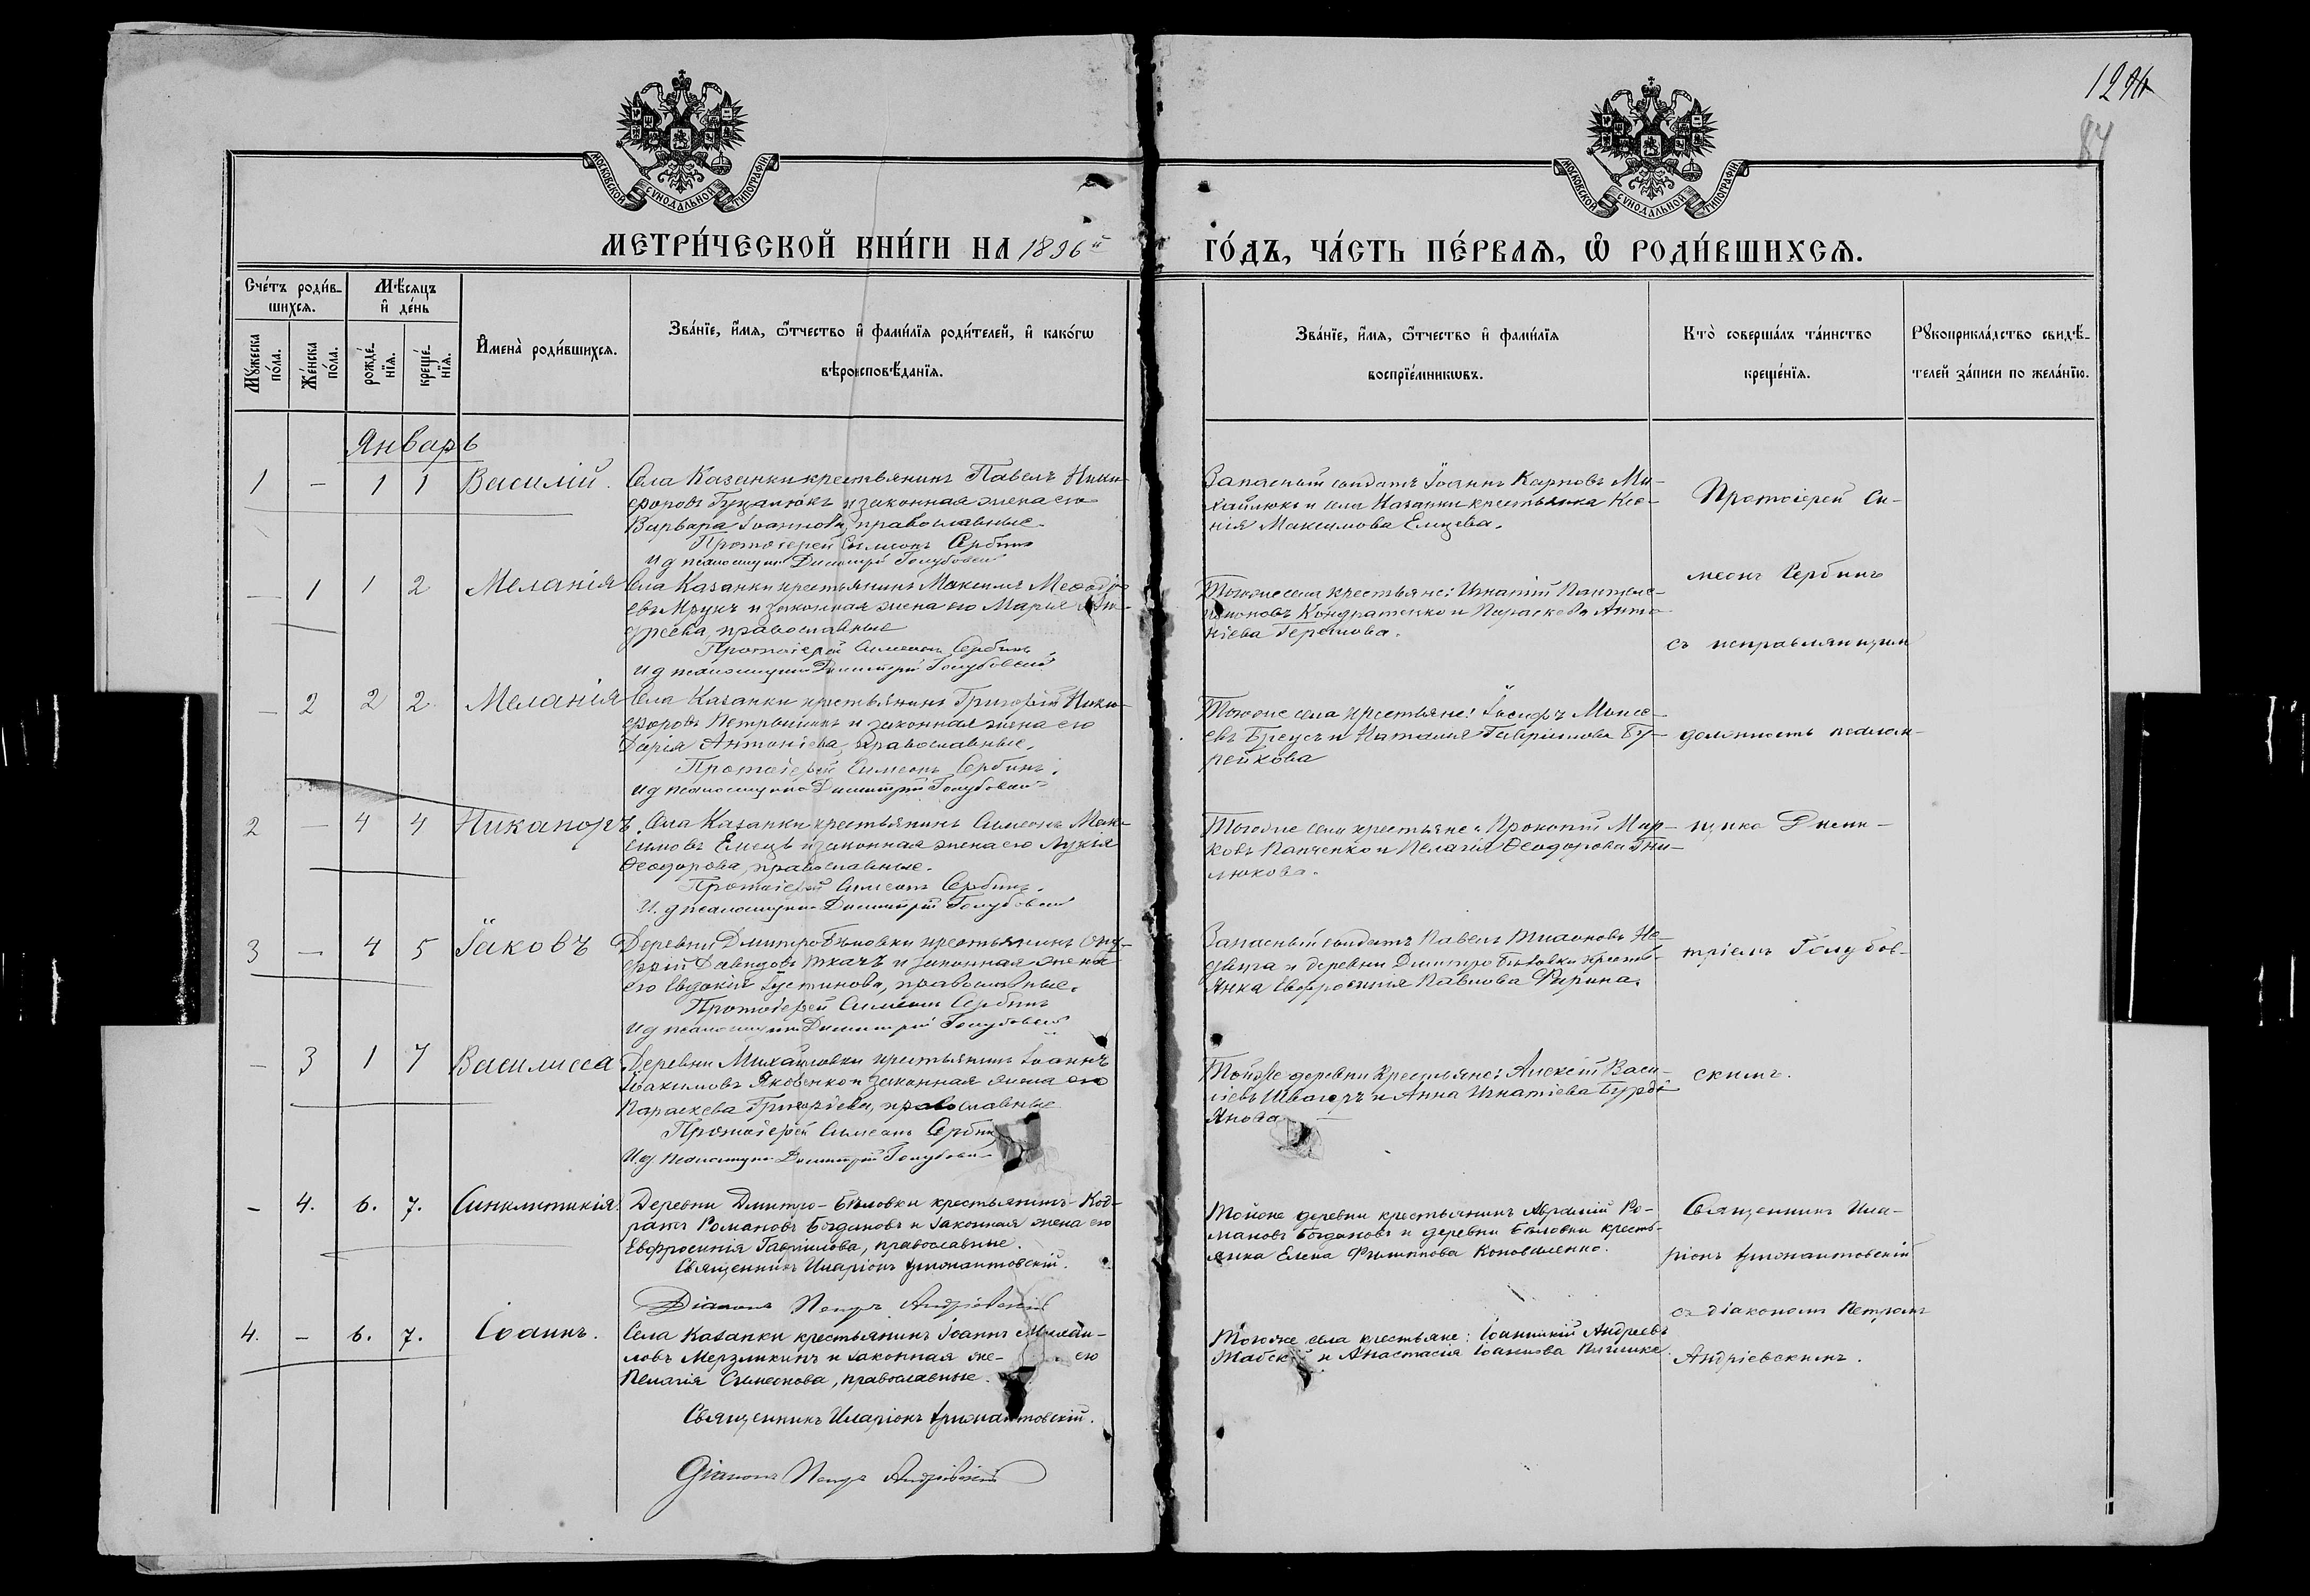 1294
84
МОСКОВСКОЙ СѴНОДАЛЬНОЙ ТИПОГРАФІИ
МОСКОВСКОЙ СѴНОДАЛЬНОЙ ТИПОГРАФІИ
МЕТРИ́ЧЕСКОЙ КНИ́ГИ НА 1896й ГО́ДЪ, ЧА́СТЬ ПЕ́РВАѦ, Ѡ РОДИ́ВШИХСѦ.
Сче́тъ роди́в-
шихсѧ.
Мѣ́сѧцъ
и де́нь
Мꙋ́жеска
по́ла.
Же́нска
по́ла.
рожде́-
нїѧ.
креще́-
нїѧ.
И҆мена̀ роди́вшихсѧ.
Зва́нїе, и҆́мѧ, ѻ҆́тчество и҆ фами́лїѧ роди́телей, и҆ како́гѡ
вѣроисповѣ́данїѧ.
Зва́нїе, и҆́мѧ, ѻ҆́тчество и҆ фами́лїѧ
воспрїе́мникѡвъ.
Кто̀ соверша́лъ та́инство
креще́нїѧ.
Рꙋкоприкла́дство свидѣ́-
телей за́писи по жела́нїю.
Январь
1 - 1 1 Василій.
Села Казанки крестьянинъ Павелъ Ники-
форовъ Буцалюкъ и законная жена его
Варвара Іоаннова, православные
Протоіерей Симеонъ Сербинъ
И д псаломщика Димитрій Голубовскій
Запасный солдатъ Іоаннъ Карповъ Ми-
хайлюкъ и села Казанки крестьянка Ксе-
нія Максимова Емцева.
Протоіерей Си-
- 1 1 2 Меланія
Села Казанки крестьянинъ Максимъ Меѳодіе-
евъ Мрунъ и законная жена его Марія Ан-
дреева, православные
Протоіерей Симеонъ Сербинъ
И д псаломщика Димитрій Голубовскій
Тогоже села крестьяне: Игнатій Пантеле-
имоновъ Кондратенко и Параскева Анто-
ніева
меонъ Сербинъ
съ исправляющим
- 2 2 2 Меланія
Села Казанки крестьянинъ Григорій Ники-
форовъ и законная жена его
Дарія Антоніева, православные.
Протоіерей Симеонъ Сербинъ.
И д псаломщика Димитрій Голубовскій
Тогоже села крестьяне: Іосифъ Моисе-
евъ Бреусъ и Наталія Гавріилова Бу-
рейкова
должность псалом-
2 - 4 4 Никаноръ
Села Казанки крестьянинъ Симеонъ Мак-
симовъ Емецъ и законная жена его Лукія
Ѳеодорова, православные.
Протоіерей Симеонъ Сербинъ.
И. д псаломщика Димитрій Голубовскій
Тогоже села крестьяне: Прокопій Мар-
ковъ Панченко и Пелагія Ѳеодорова Гни-
люкова.
щика Дими-
3 - 4 5 Іаковъ
Деревни Дмитро Бѣловки крестьянинъ Ону-
фрій Давидовъ Ткачъ и законная жена
его Евдокія Іустинова, православные.
Протоіерей Симеонъ Сербинъ
И д псаломщика Димитрій Голубовскій
Запасный солдатъ Павелъ Тихоновъ Не-
двига и деревни Дмитро Бѣловки кресть-
янка Евфросинія Павлова Фирина.
тріемъ Голубов-
- 3 1 7 Василисса
Деревни Михайловки крестьянинъ Іоаннъ
Іоакимовъ Яковенко и законная жена его
Параскева Григоріева, православные
Протоіерей Симеонъ Сербинъ
И.д. псаломщика Димитрій Голубовскій
Тойже деревни крестьяне: Алексій Васи-
ліевъ Швагеръ и Анна Игнатіева
янова
скимъ.
- 4. 6. 7. Синклитикія.
Деревни Дмитро-Бѣловки крестьянинъ Код-
ратъ Романовъ Богдановъ и законная жена его
Евфросинія Гавріилова, православные.
Священникъ Иларіонъ
Діаконъ Петръ Андріевскій
Тойже деревни крестьянинъ Авраамій Ро-
мановъ Богдановъ и деревни Бѣловки кресть-
янка Елена Филиппова Коноваленко.
Священникъ Ила-
ріонъ
съ діакономъ Петромъ
4. - 6. 7. Іоаннъ.
Села Казанки крестьянинъ Іоаннъ Михаи-
ловъ Мерзликинъ и законная же- его
Пелагія Симеонова, православные.
Священникъ Иларіонъ
Діаконъ Петръ Андріевскій
Тогоже села крестьяне: Іоанникій Андреевъ
и Анастасія Іоаннова
Андріевскимъ.